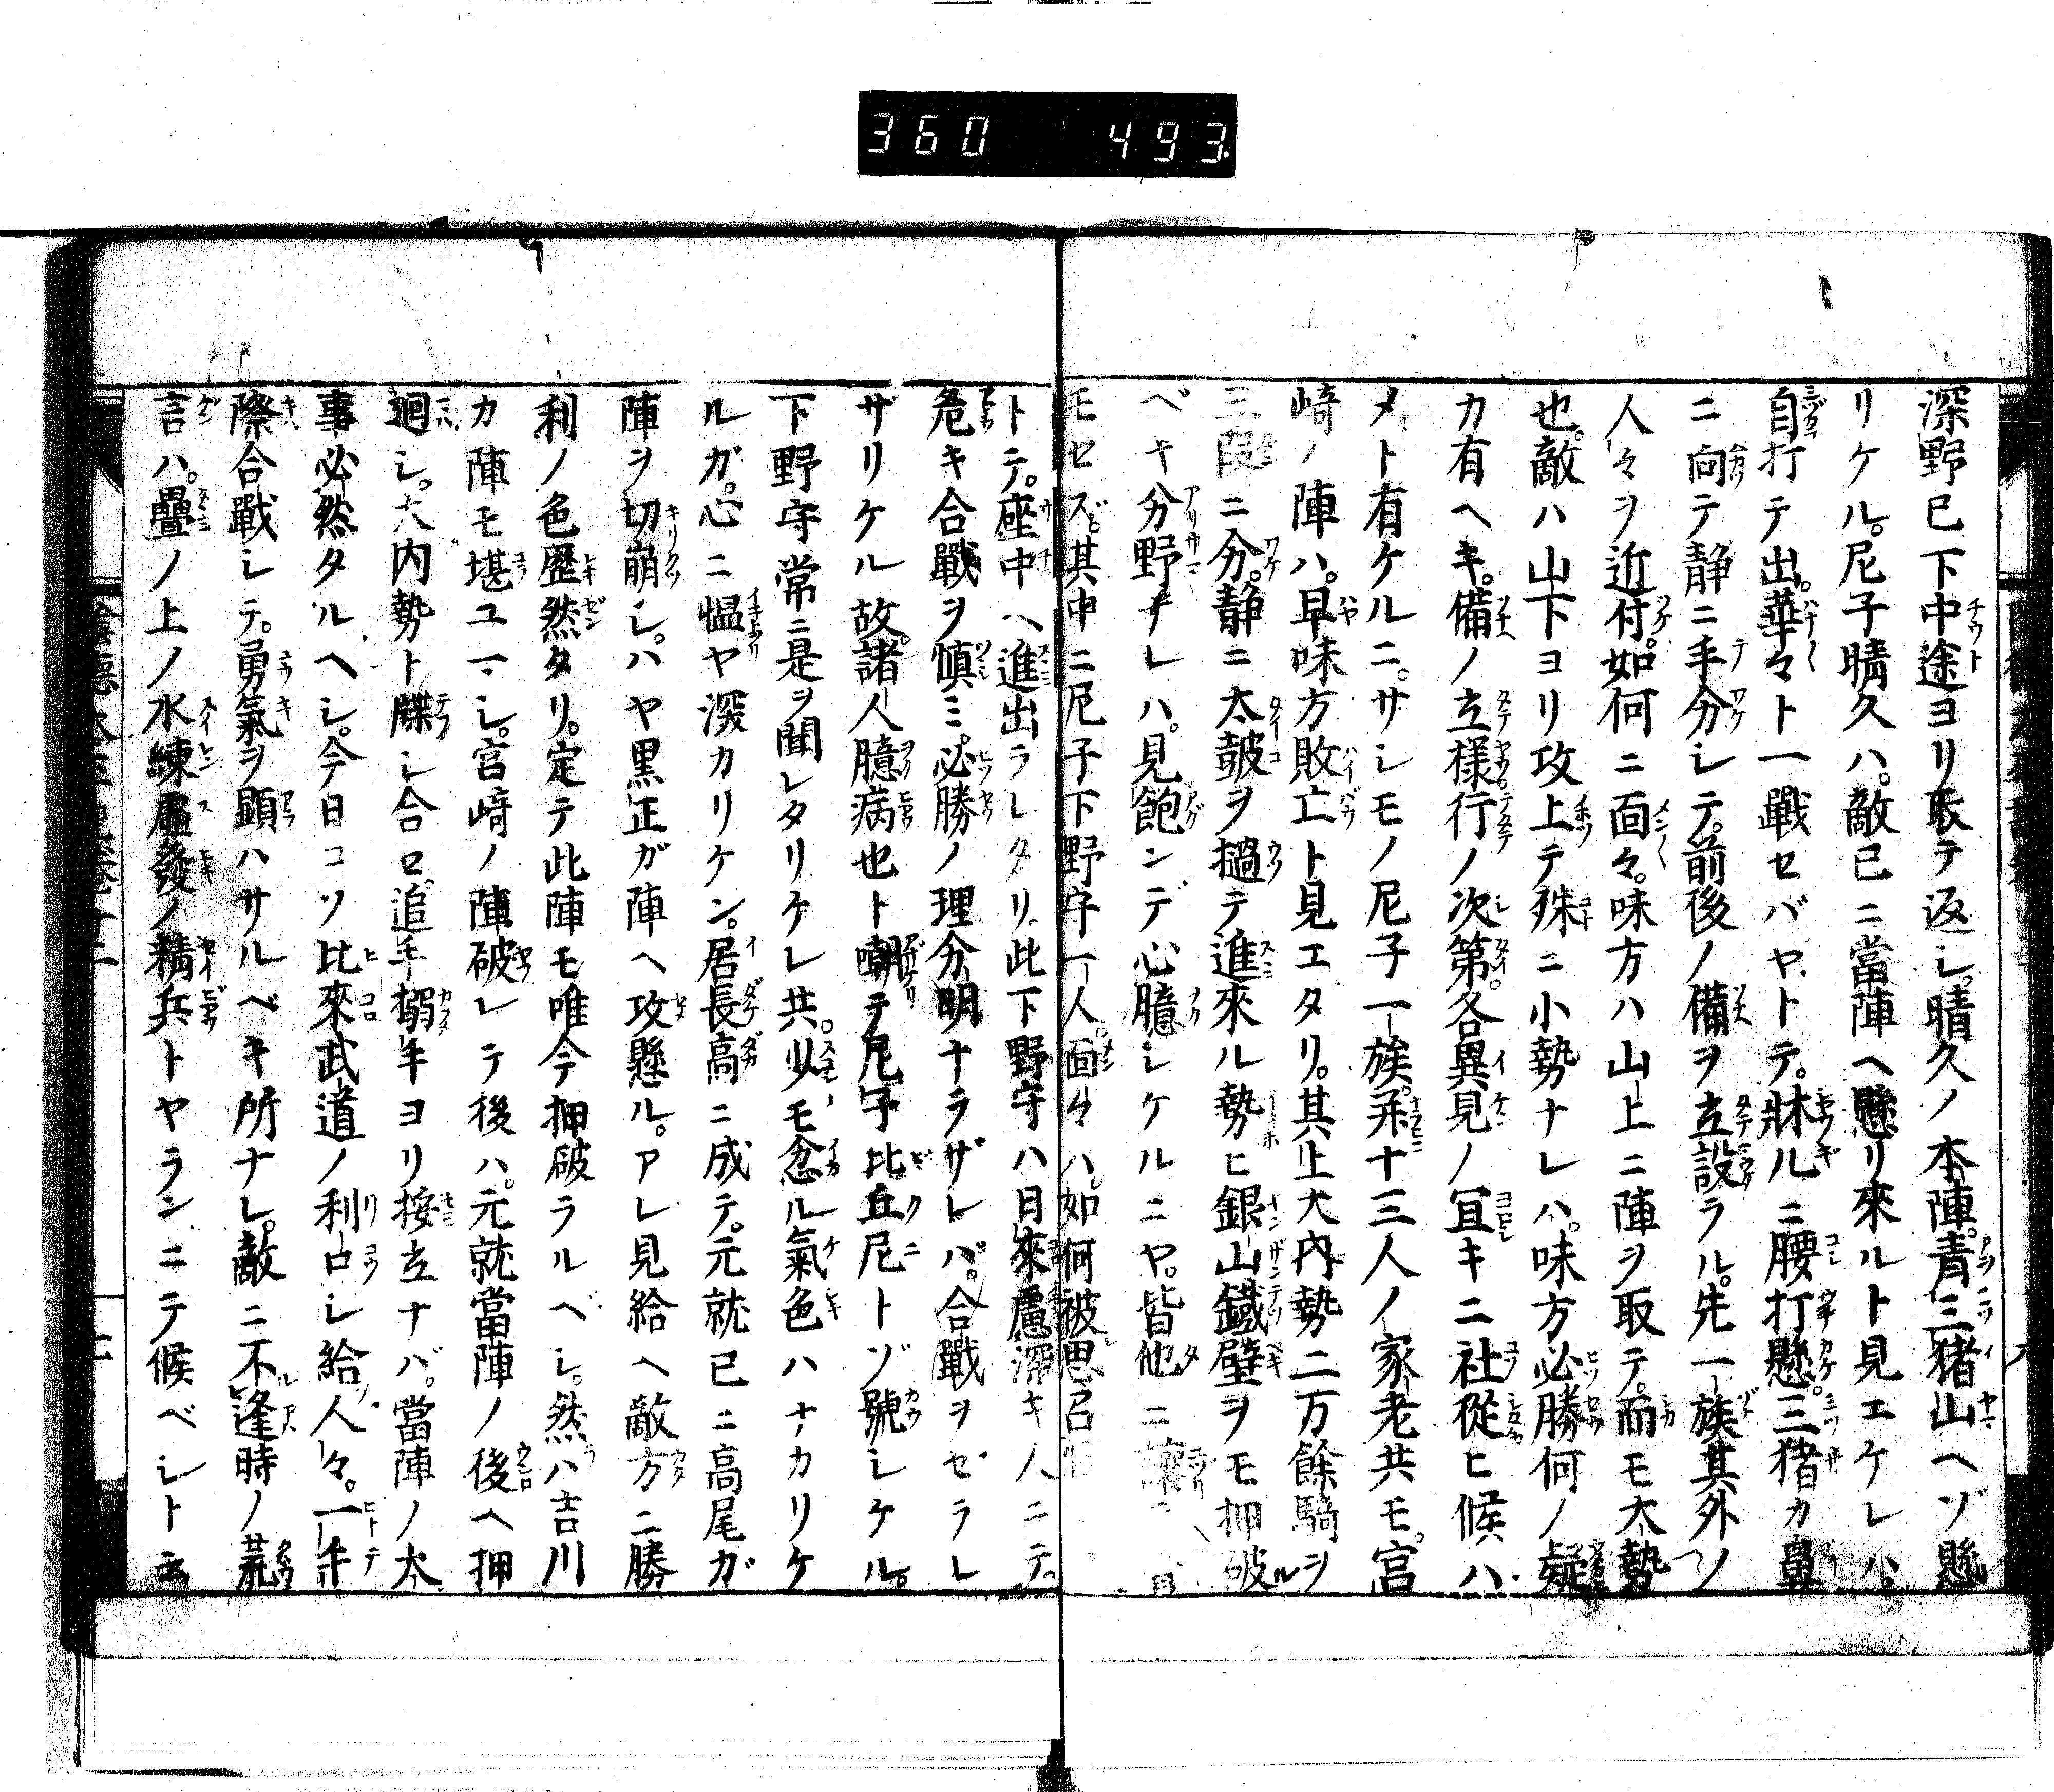 360 493
深野已下中途ヨリ取テ返シ。晴久ノ本陣。青三猪山ヘゾ懸
リケル。尼子晴久ハ。敵已ニ當陣ヘ懸リ來ルト見エケレハ。
自打テ出。華々ト一戰セバヤトテ。牀几ニ腰打懸。三猪カ鼻
ニ向テ静ニ手分シテ。前後ノ備ヲ立設ラル。先一族其外ノ
人々ヲ近付。如何ニ面々。味方ハ山上ニ陣ヲ取テ。而モ大勢
也。敵ハ山下ヨリ攻上テ殊ニ小勢ナレハ。味方必勝何ノ疑
カ有ヘキ。備ノ立様。行ノ次第。各異見ノ冝キニ社從ヒ候ハ
メト有ケルニ。サシモノ尼子一族。弟十三人ノ家老共モ。宮
﨑ノ陣ハ。早味方敗亡ト見エタリ。其上大内勢二万餘騎ヲ
三段ニ分。静ニ太皷ヲ撾テ進來ル勢ヒ銀山鐵壁ヲモ押破ル
ベキ分野ナレハ。見飽ンデ心臆シケルニヤ。皆他ニ
モセズ。其中ニ尼子下野守一人。面々ハ如何被思召
トテ。座中ヘ進出ラレタリ。此下野守ハ日來慮深キ人ニテ。
危キ合戰ヲ慎ミ。必勝ノ理分明ナラザレバ。合戰ヲセラレ
ザリケル故。諸人臆病也ト嘲テ尼子比丘尼トゾ號シケル。
下野守常ニ是ヲ聞レタリケレ共。少モ忿ル氣色ハナカリケ
ルガ。心ニ愠ヤ深カリケン。居長高ニ成テ。元就已ニ高尾ガ
陣ヲ切崩シ。ハヤ黒正ガ陣ヘ攻懸ル。アレ見給ヘ敵方ニ勝
利ノ色歴然タリ。定テ此陣モ唯今押破ラルベシ。然ハ吉川
カ陣モ堪ユマシ。宮﨑ノ陣破レテ後ハ。元就當陣ノ後ヘ押
廻シ。大内勢ト牒シ合ロ。追手搦手ヨリ接立ナバ。當陣ノ大
事必然タルヘシ。今日コソ比來武道ノ利口シ給人々。一手
際合戰シテ。勇氣ヲ顕ハサルベキ所ナレ。敵ニ不逢時ノ荒
言ハ。疊ノ上ノ水練虚發ノ精兵トヤランニテ候ベシト云